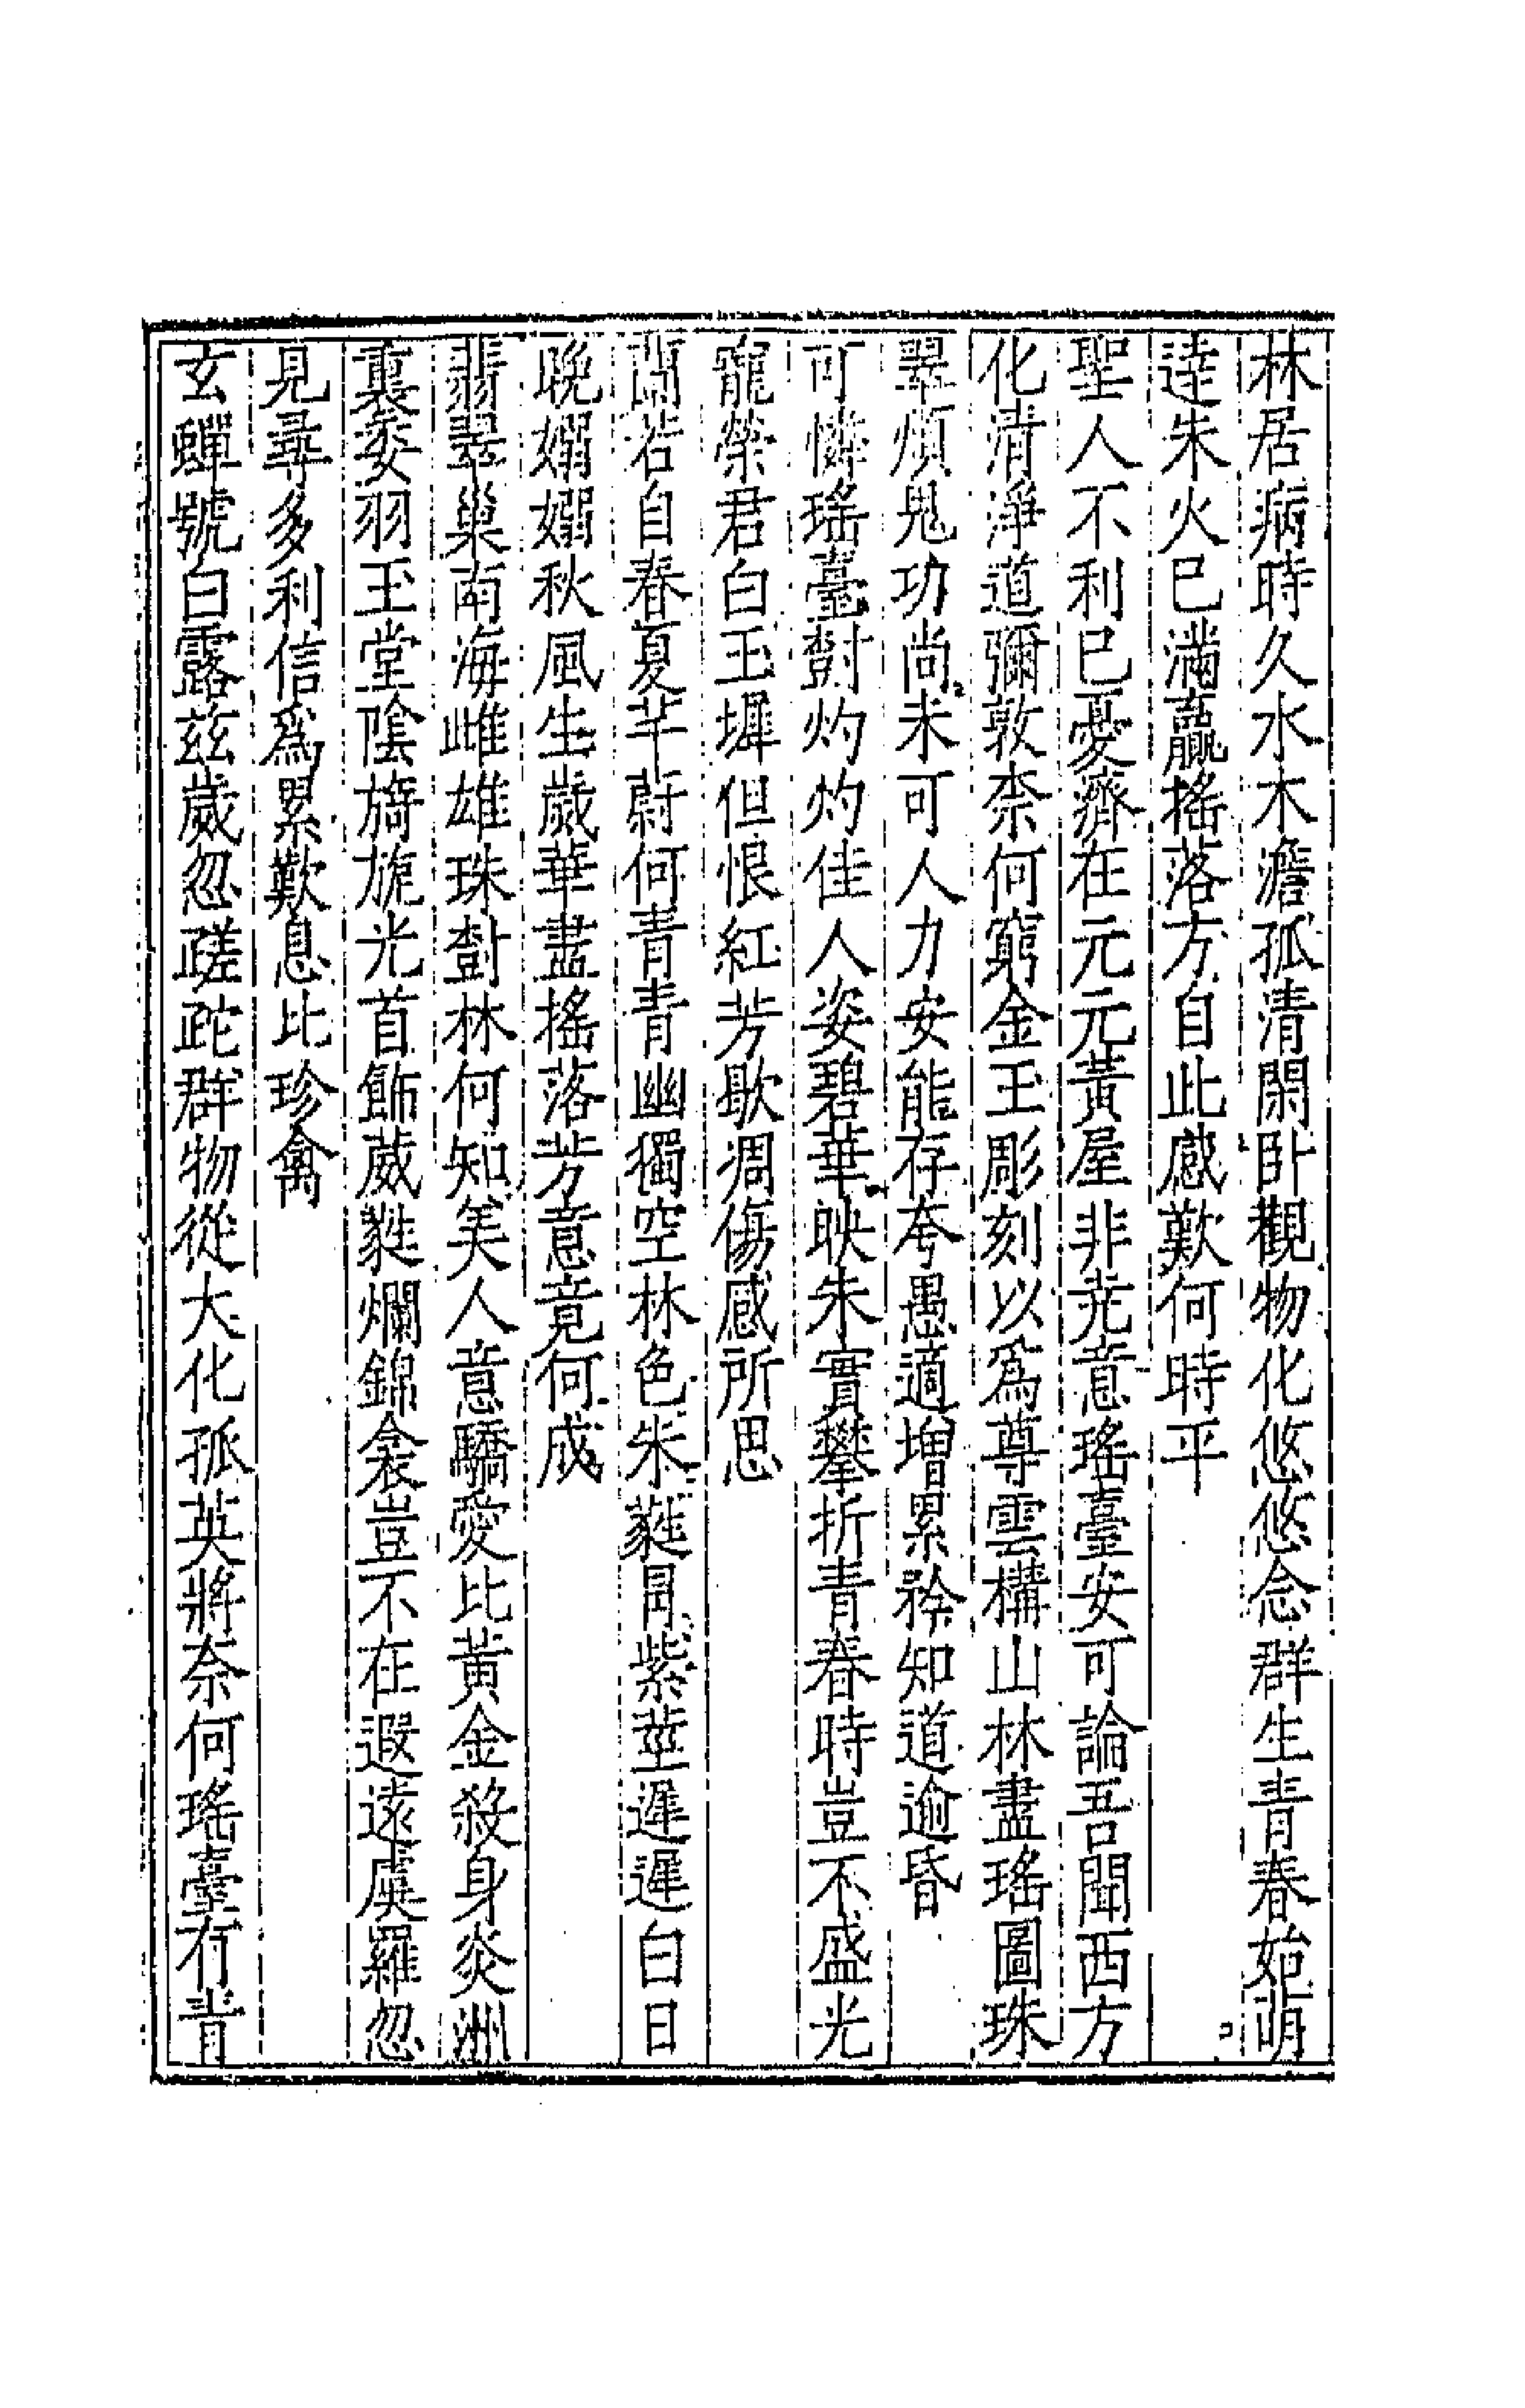 林居病時久水木澹孤清閑卧觀物化悠悠念群生青春始萌
逹朱火已滿贏搖落方自此感歎何時平
聖人不利已憂濟在元元黃屋非堯意瑤臺安可論吾聞西方
化清淨道彌敦柰何窮金玉彫刻以爲尊雲構山林盡瑤圖珠
翠煩鬼功尚未可人力安能存夸愚適增累矜知道逾昏
可憐瑤臺樹灼灼佳人姿碧華映朱實攀折青春時豈不盛光
寵榮君白玉墀但恨紅芳歇凋傷感所思
蘭若自春夏芊蔚何青青幽獨空林色朱蕤冐紫莖遲遲白日
晚嫋嫋秋風生歲華盡搖落芳意竟何成
翡翠巢南海雌雄珠樹林何知美人意驕愛比黃金殺身炎洲
裏委羽玉堂陰旖旎光首飾葳蕤爛錦衾豈不在遐遠虞羅忽
見尋多利信爲累歎息比珍禽
玄蟬號白露兹歲忽蹉跎群物從大化孤英將奈何瑤臺有青